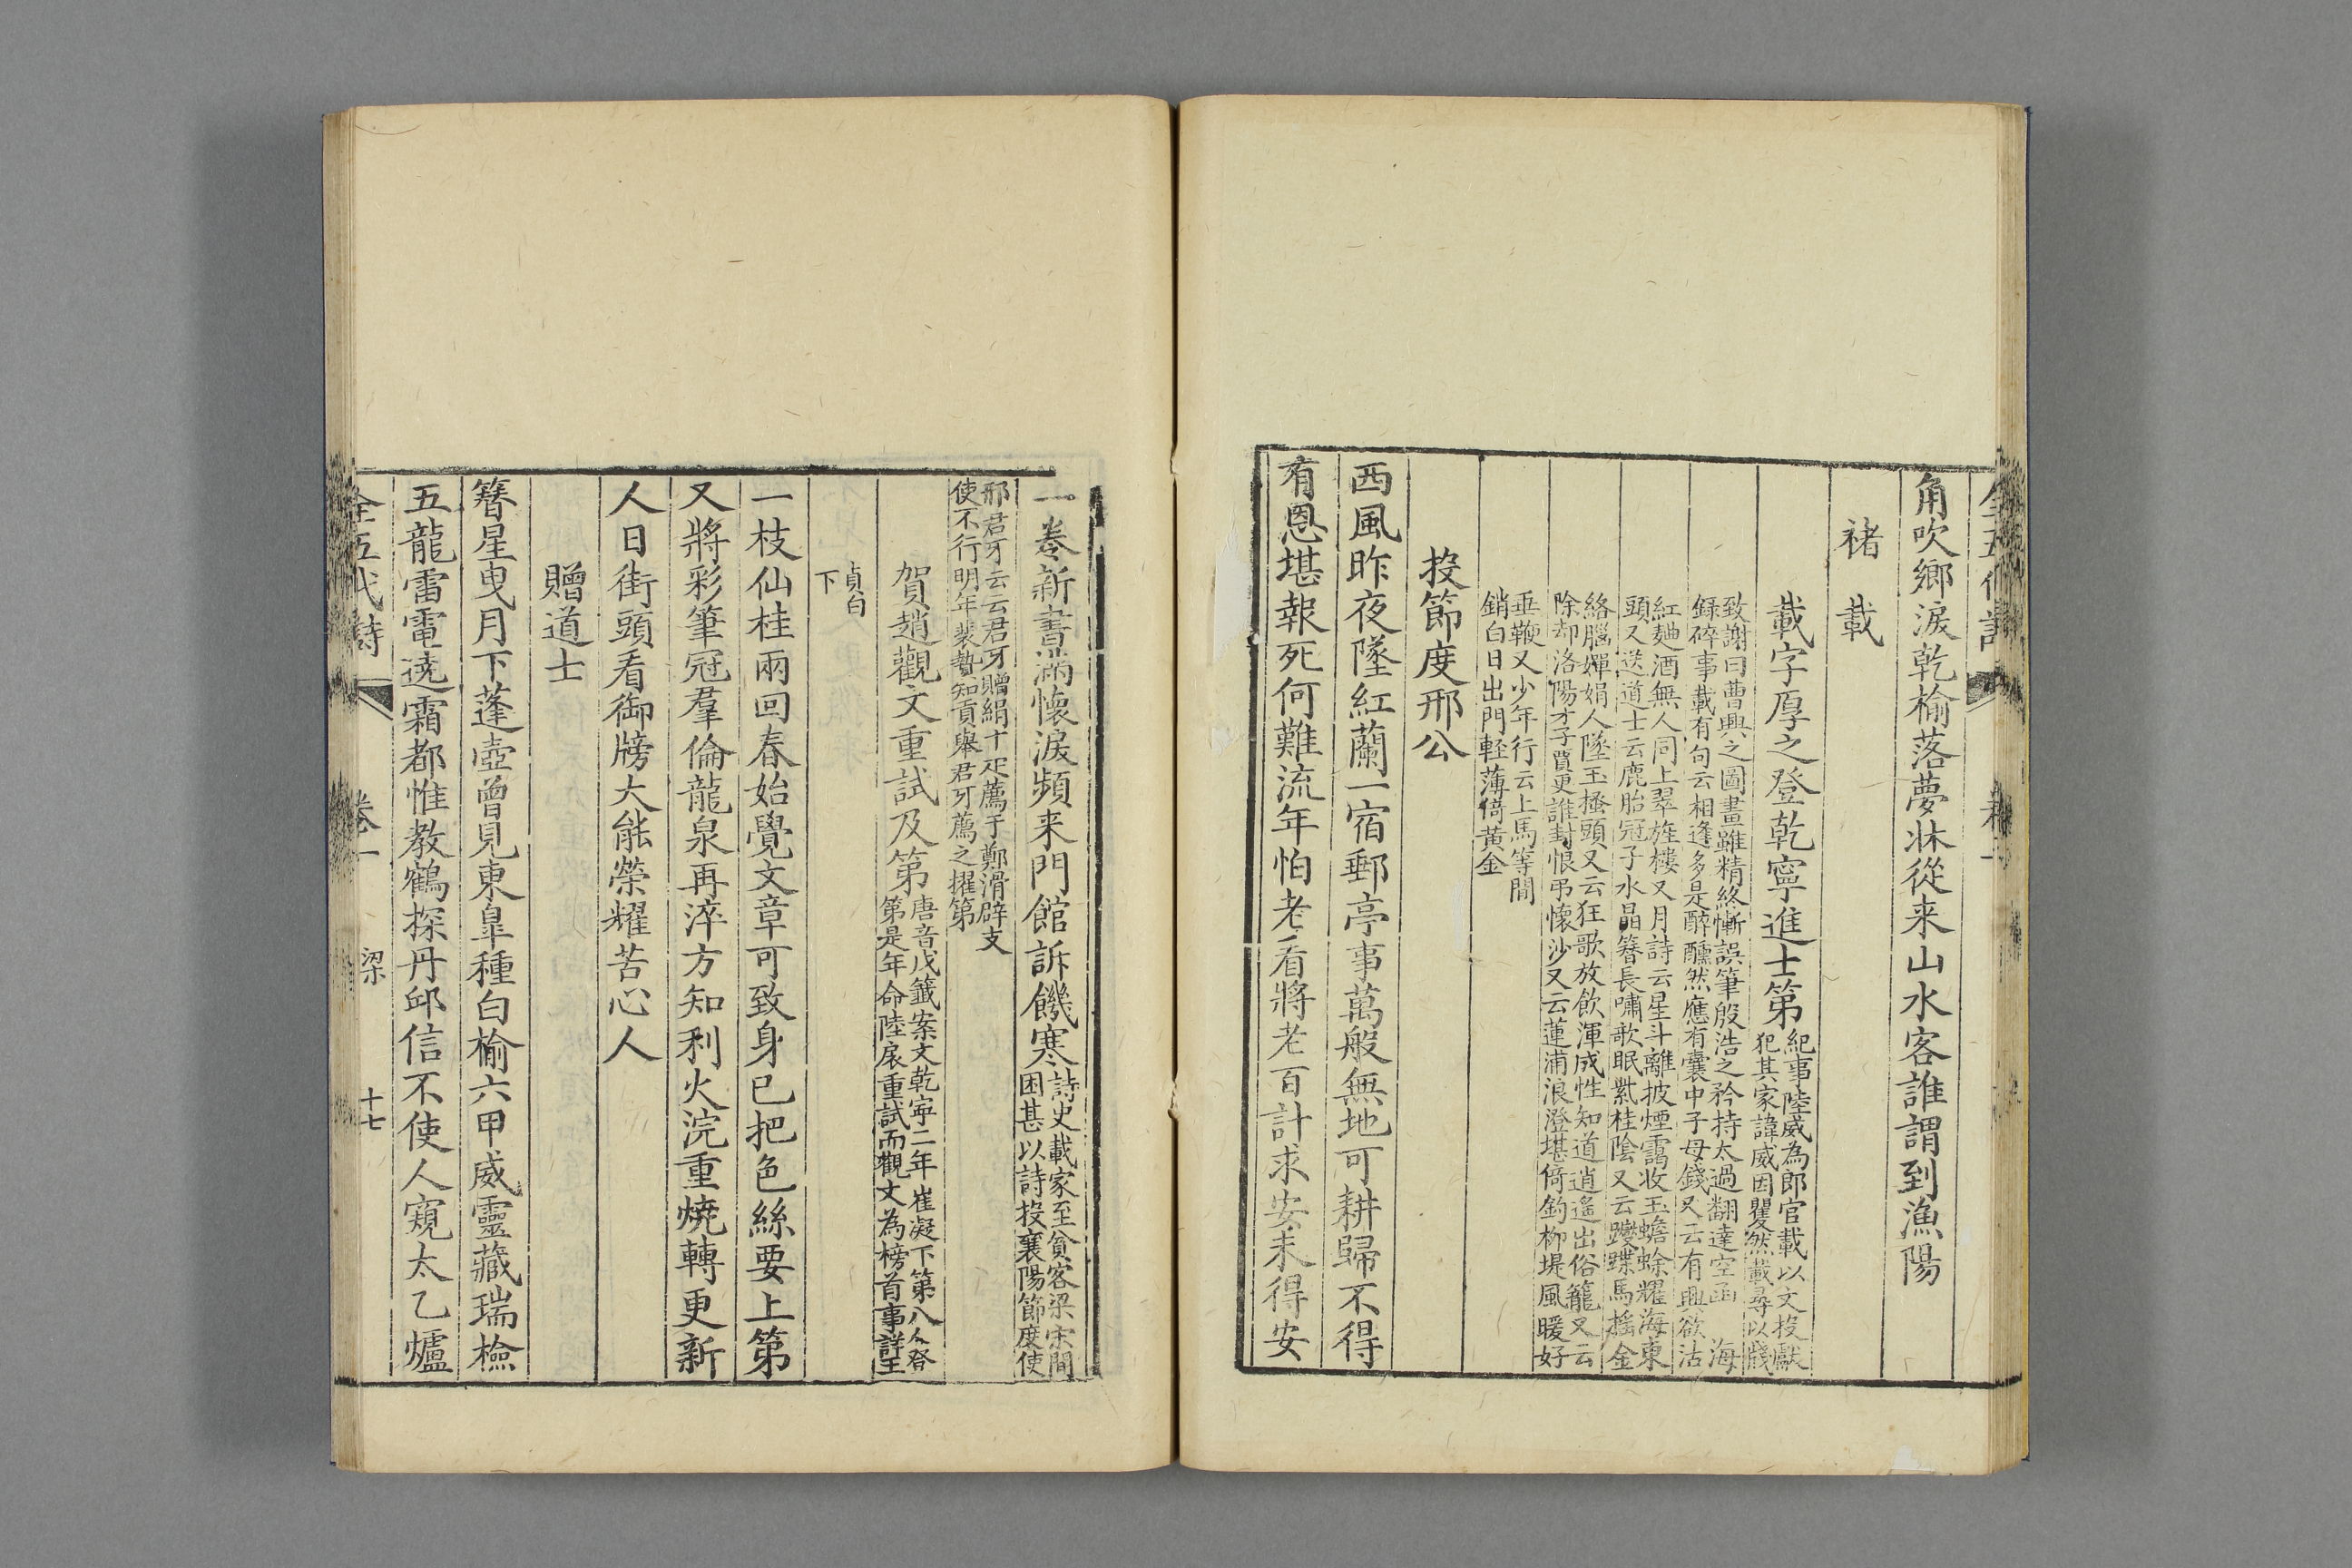 角吹鄉淚乾榆落夢牀從来山水客誰謂到漁陽
褚載
載字厚之登乾寧進士第
紀事陸威為郎官載以文投獻
犯其家諱威因矍然載尋以牋
致謝曰曹興之圖畫雖精終慚誤筆殷浩之矜持太過翻達空函 海
録碎事載有句云相逢多是醉醺然應有囊中子母錢又云有興欲沽
紅麯酒無人同上翠旌樓又月詩云星斗離披煙靄收玉蟾蜍耀海東
頭又送道士云鹿胎冠子水晶簪長嘯歌眠紫桂陰又云躞蹀馬搖金
絡腦嬋娟人墜玉搔頭又云狂歌放飲渾成性知道逍遙出俗籠又云
除却洛陽才子賈更誰封恨弔懷沙又云蓮浦浪澄堪倚釣柳堤風暖好
垂鞭又少年行云上馬等閒
銷白日出門輕薄倚黃金
投節度邢公
西風昨夜墜紅蘭一宿郵亭事萬般無地可耕歸不得
有恩堪報死何難流年怕老看將老百計求安未得安
一卷新書滿懷淚頻来門館訴饑寒
詩史載家至貧客梁宋間
困甚以詩投襄陽節度使
邢君牙云云君牙贈絹十疋薦于鄭滑辟支
使不行明年裴贄知貢舉君牙薦之擢第
賀趙觀文重試及第
唐音戊籤案文乾寧二年崔凝下第八人登
第是年命陸扆重試而觀文為榜首事詳王
貞白
下
一枝仙桂兩回春始覺文章可致身已把色絲要上第
又將彩筆冠羣倫龍泉再淬方知利火浣重燒轉更新
人日街頭看御牓大能榮耀苦心人
贈道士
簪星曳月下蓬壺曾見東皐種白榆六甲威靈藏瑞檢
五龍雷電遶霜都惟教鶴探丹邱信不使人窺太乙爐
全五代詩 卷一 梁 十七